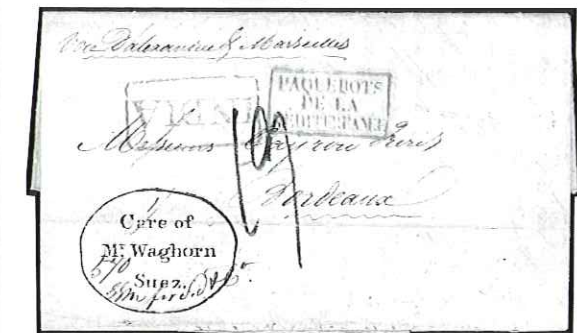 Via Dalexandrie & Marseilles
INDIA
PAQUEBOTS
DE LA
MÉDITERRANÉE
Messieurs Frères
Bordeaux
19
Care of
Mr. Waghorn
Suez.